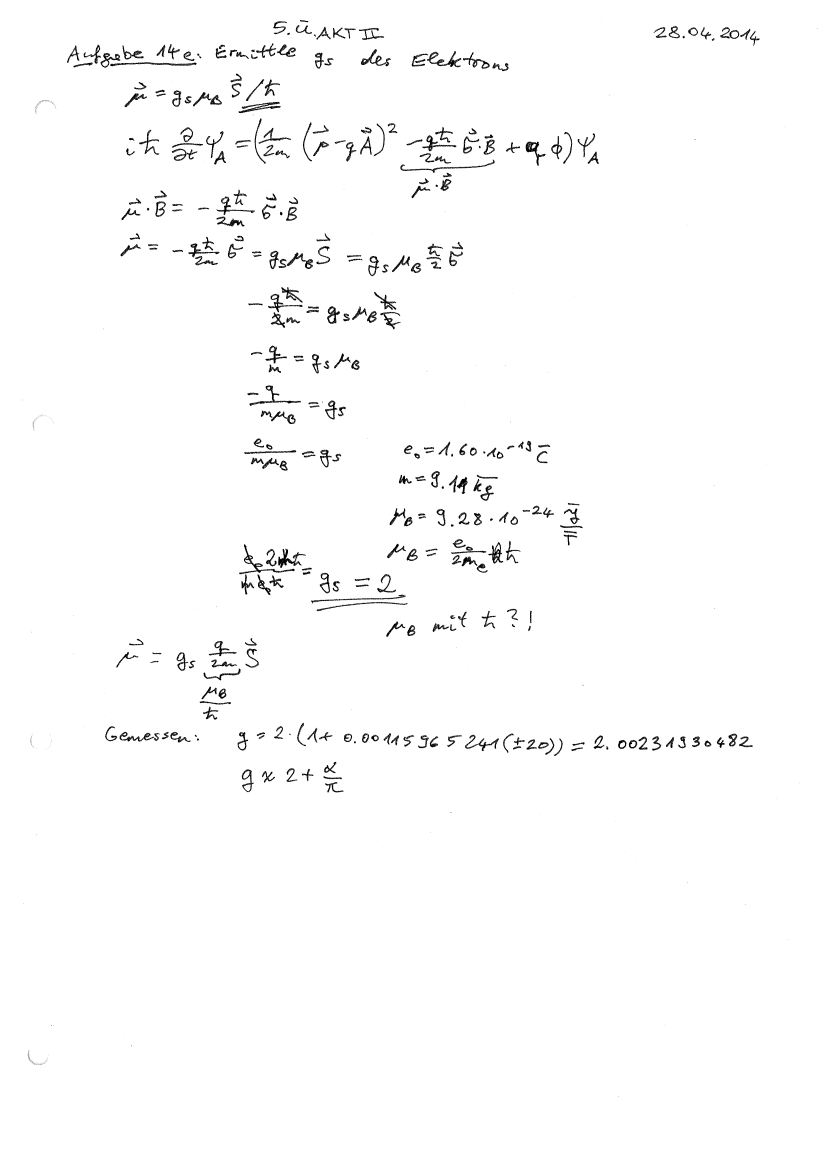 5. Ü. AKT II
28.04.2014
Aufgabe 14e: Ermittle gs des Elektrons
μ⃗ = gs μB S⃗/ħ
iħ ∂/∂t ΨA = (1/2m (p⃗ - qA⃗)² - qħ/2m σ⃗·B⃗ + q ϕ) ΨA
μ⃗·B⃗
μ⃗·B⃗ = - qħ/2m σ⃗·B⃗
μ⃗ = - qħ/2m σ⃗ = gs μB S⃗ = gs μB ħ/2 σ⃗
- qħ/2m = gs μB ħ/2
- q/m = gs μB
-q/mμB = gs
e₀/mμB = gs
e₀ = 1.60·10⁻¹⁹ C
m = 9.11 kg
μB = 9.28·10⁻²⁴ J/T
μB = e₀/2me ħ
e₀ 2mħ/m e₀ ħ = gs = 2
μB mit ħ?!
μ⃗ = gs q/2m S⃗
μB/ħ
Gemessen: g = 2·(1+ 0.00115965241(±20)) = 2.00231930482
g ≈ 2 + α/π